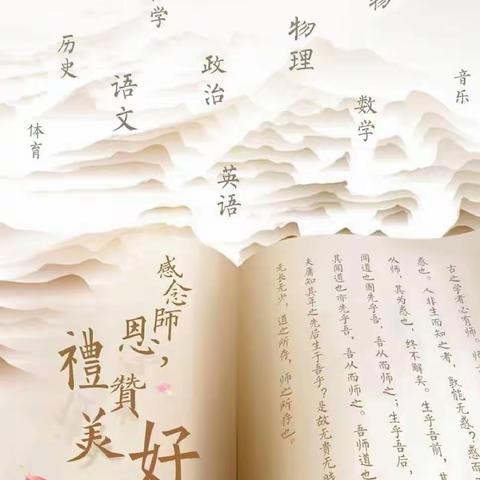 学
物
物理
历史
政治
语文
音乐
数学
体育
英语
感念師
恩，
禮贊
美好
古之学者必有师。师
惑也。人非生而知之者，孰能无惑？惑而
从师，其为惑也，终不解矣。生乎吾前，其
闻道也固先乎吾，吾从而师之；生乎吾后，
其闻道也亦先乎吾，吾从而师之。吾师道也
夫庸知其年之先后生于吾乎？是故无贵无贱
无长无少，道之所存，师之所存也。